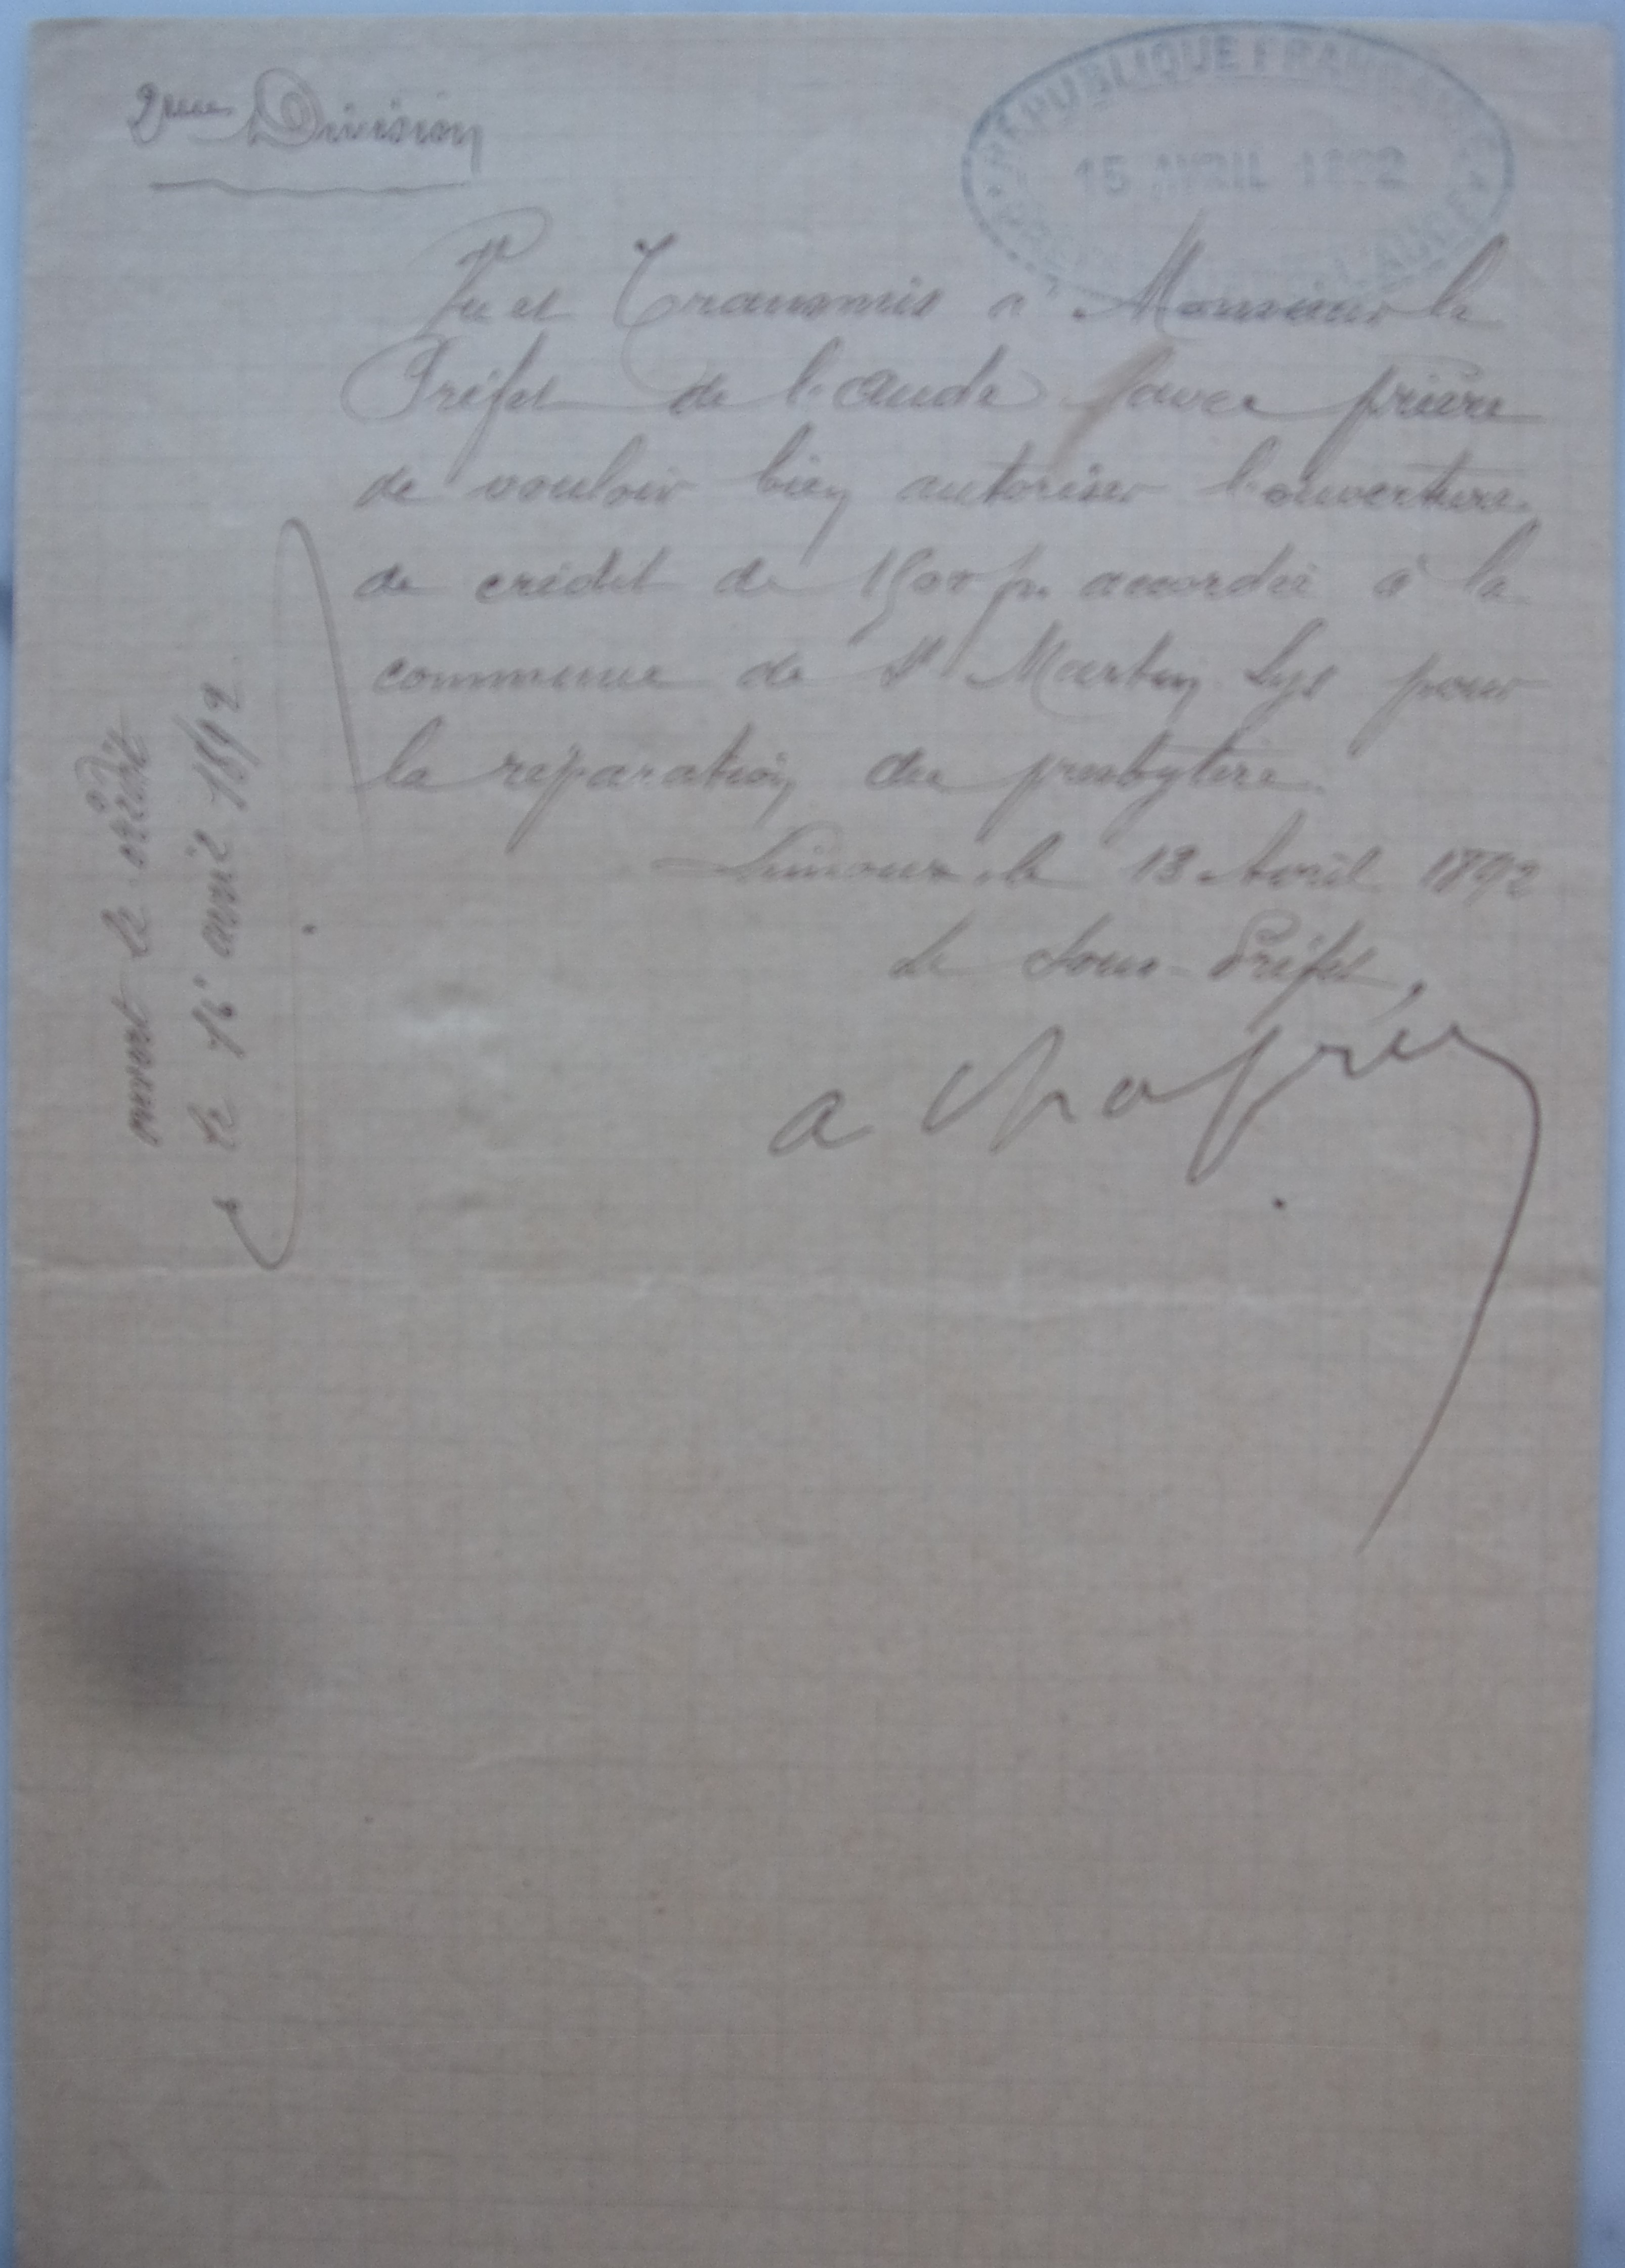 2ème Division
RÉPUBLIQUE FRANÇAISE
15 AVRIL 1892
L'AUDE
Vu et Transmis à Monsieur le
Préfet de l'Aude avec prière
de vouloir bien autoriser l'ouverture
de crédit de 1500 fr. accordée à la
commune de St Martin Lys pour
la réparation du presbytère.
Limoux le 13 Avril 1892
Le Sous-Préfet,
a
ouvert le crédit
le 16 avril 1892